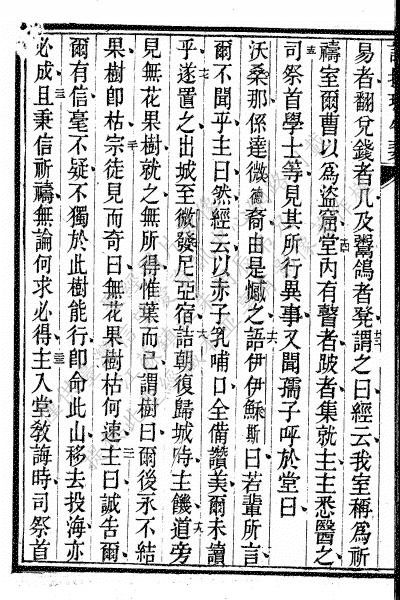 易者翻兌錢者几及鬻鴿者凳謂之曰經云我室稱為祈
禱室爾曹以為盜窟堂內有瞽者跛者集就主主悉醫之
司祭首學士等見其所行異事又聞孺子呼於堂曰
沃桑那係達微德裔由是慍之語伊伊穌斯曰若輩所言
爾不聞乎主曰然經云以赤子乳哺口全備讚美爾未讀
乎遂置之出城至微發尼亞宿詰朝復歸城時主饑道旁
見無花果樹就之無所得惟葉而已謂樹曰爾後永不結
果樹卽枯宗徒見而奇曰無花果樹枯何速主曰誠告爾
爾有信毫不疑不獨於此樹能行卽命此山移去投海亦
必成且秉信祈禱無論何求必得主入堂敎誨時司祭首